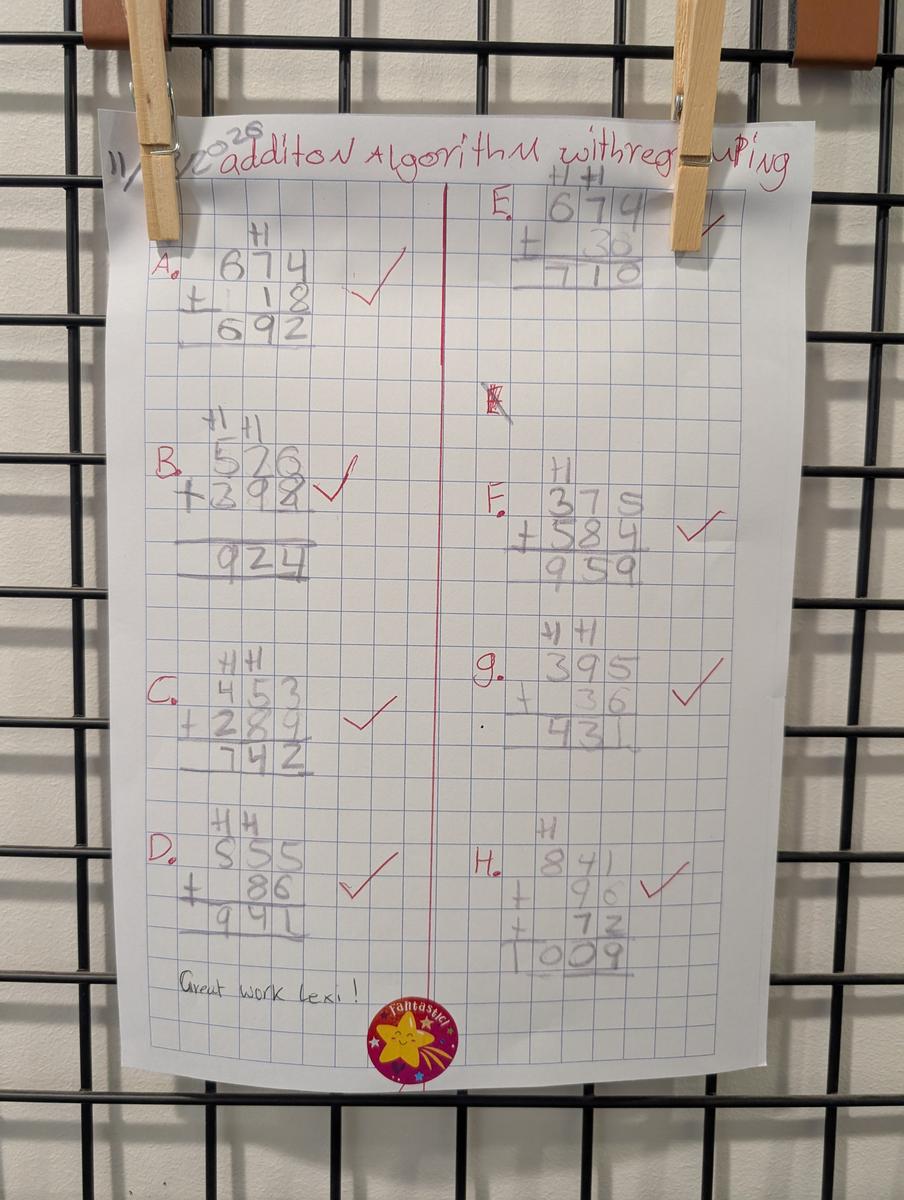 11/ /2026
additoN Algorithm withreg uping
A.
+1
674
+ 18
692
B.
+1 +1
526
+398
924
C.
+1 +1
453
+289
742
D.
+1 +1
555
+ 86
941
E.
+1 +1
674
+ 36
710
F.
+1
375
+584
959
g.
+1 +1
395
+ 36
431
H.
+1
841
+ 96
+ 72
1009
Great work Lexi!
Fantastic!